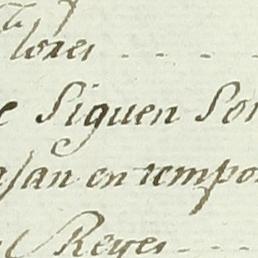 lores
Siguen Son
asan en tempo
Reyes